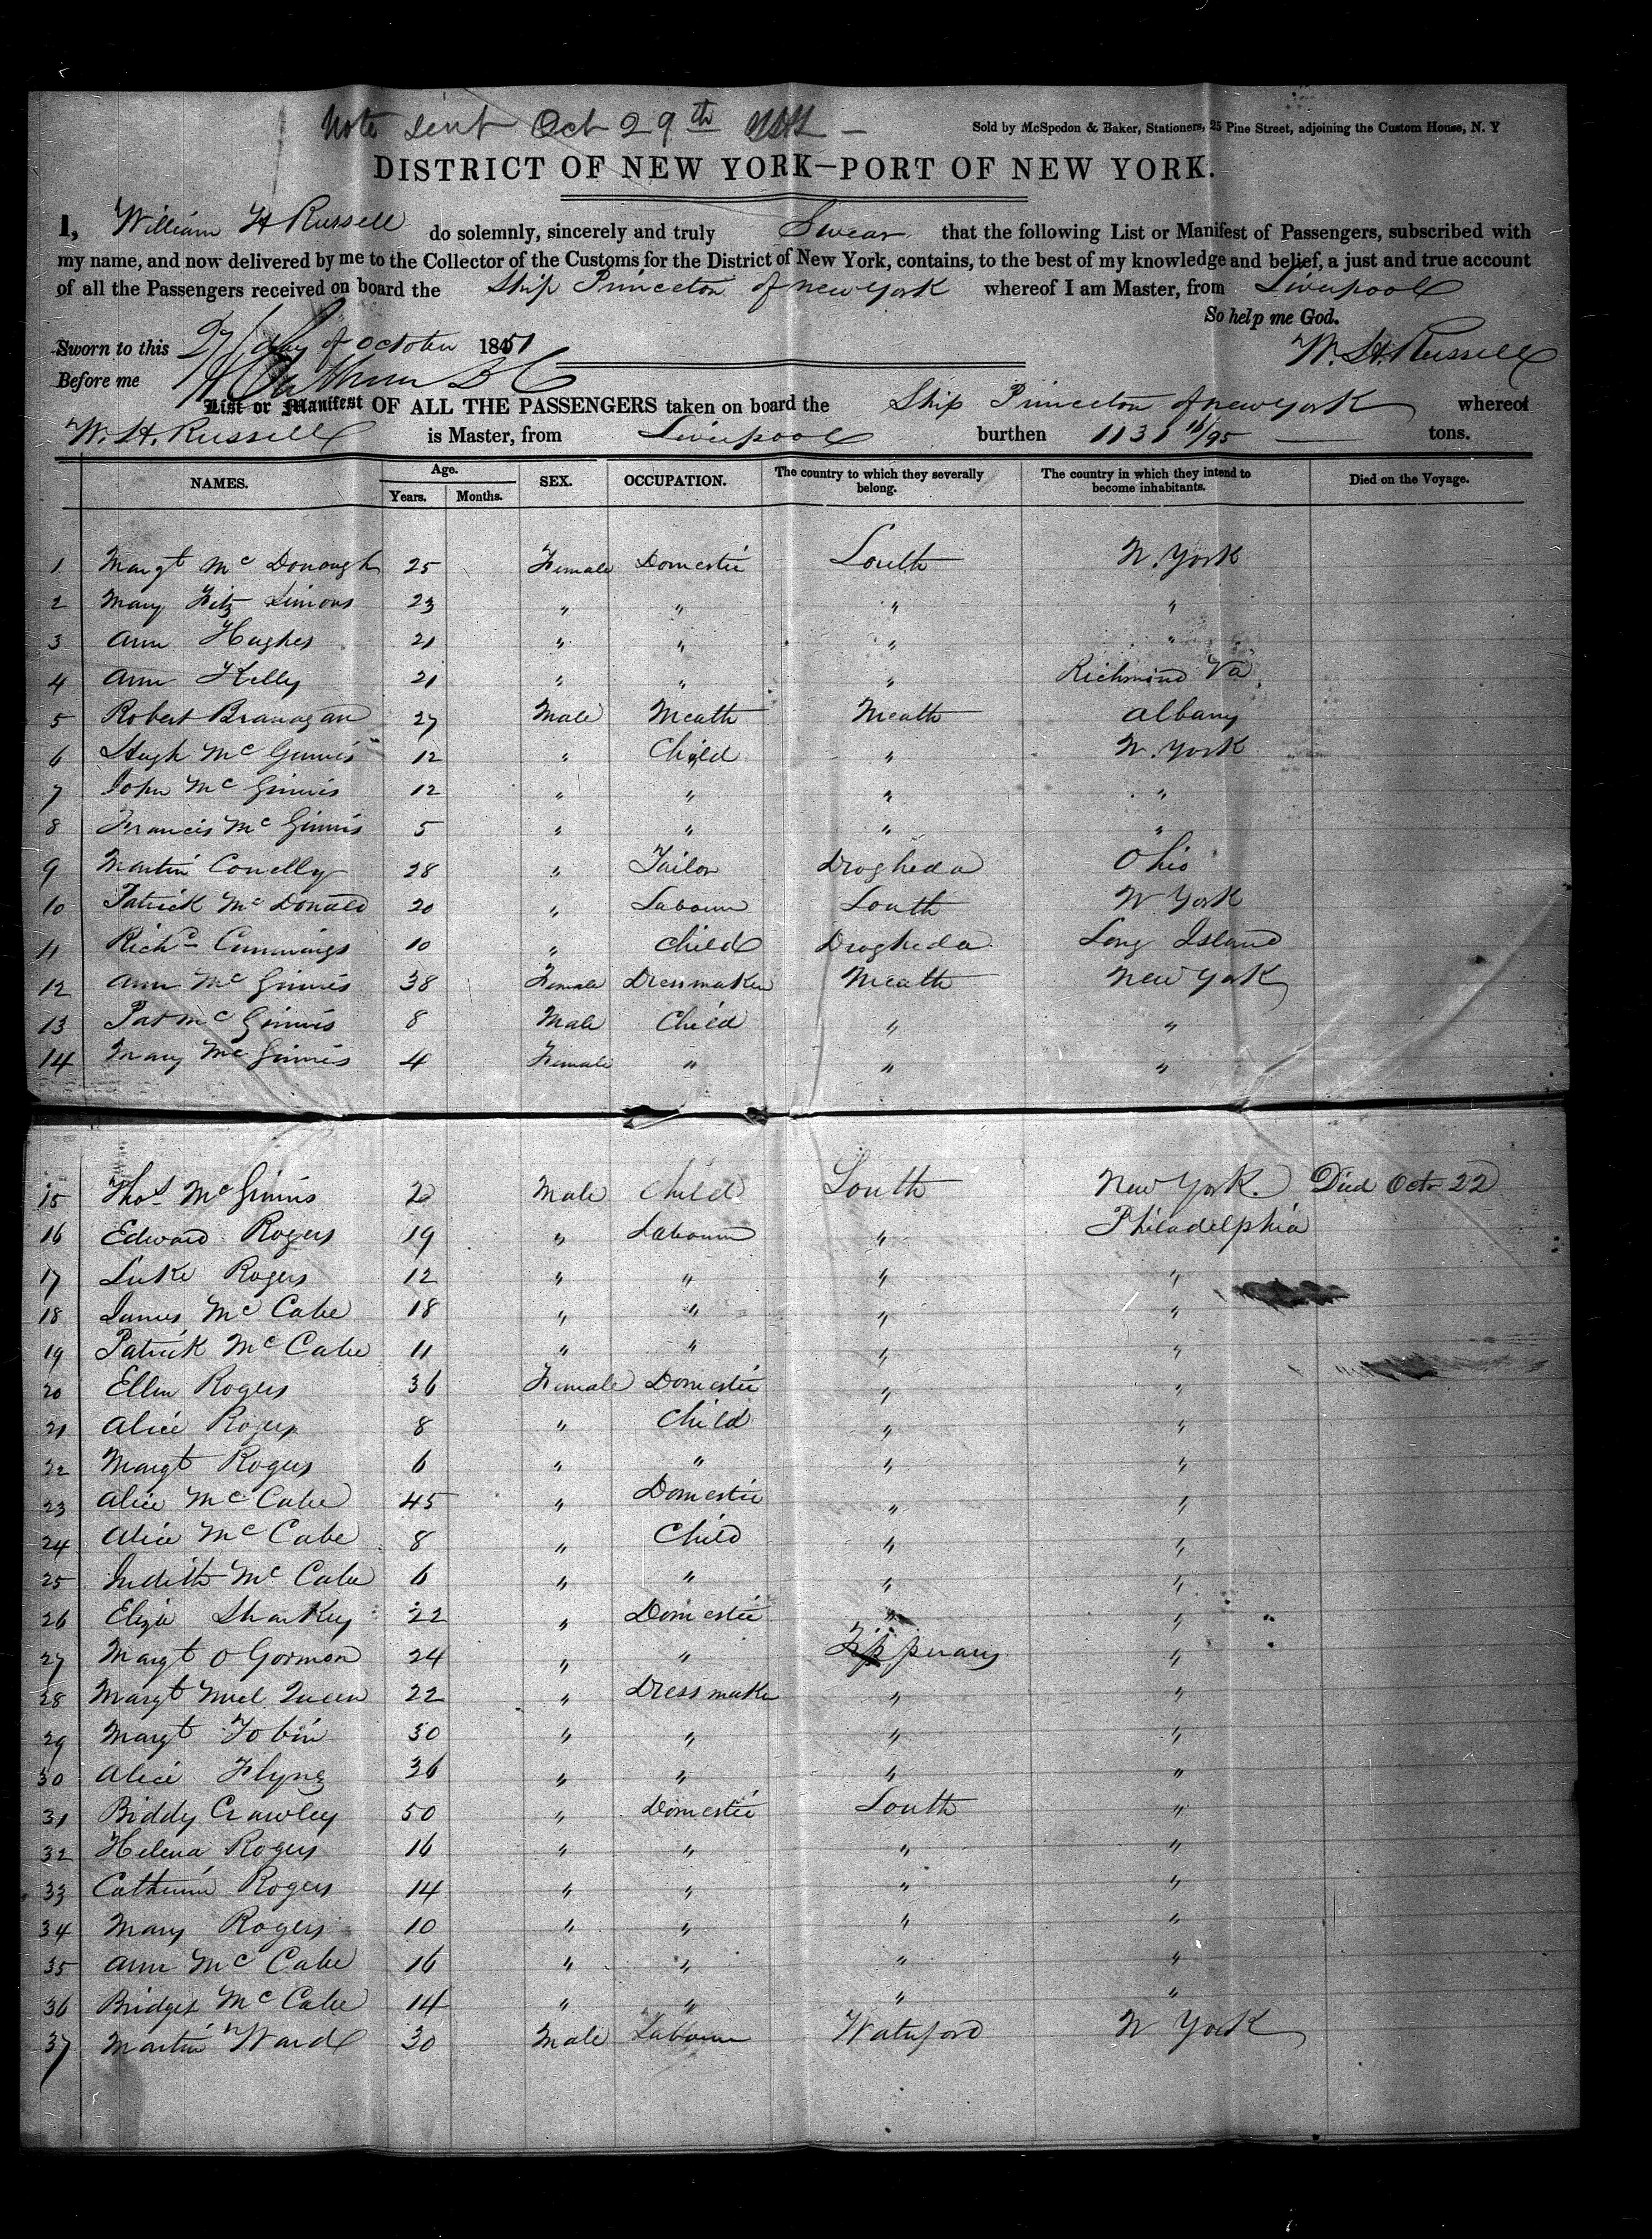 Note sent Oct 29th
Sold by McSpedon & Baker, Stationers, 25 Pine Street, adjoining the Custom House, N. Y
DISTRICT OF NEW YORK—PORT OF NEW YORK.
I, William H Russell do solemnly, sincerely and truly Swear that the following List or Manifest of Passengers, subscribed with
my name, and now delivered by me to the Collector of the Customs for the District of New York, contains, to the best of my knowledge and belief, a just and true account
of all the Passengers received on board the Ship Princeton of new york whereof I am Master, from Liverpool
So help me God.
Sworn to this 27 day of October 1851
W. H. Russell
Before me
List or Manifest OF ALL THE PASSENGERS taken on board the Ship Princeton of new york whereof
W. H. Russell is Master, from Liverpool burthen 1131 16/95 — tons.
NAMES. Age. Years. Months. SEX. OCCUPATION. The country to which they severally belong. The country in which they intend to become inhabitants. Died on the Voyage.
1 Margt Mc Donough 25 Female Domestic Louth N. York
2 Mary Fitz Simons 23 " " " "
3 Ann Hughes 21 " " " "
4 Ann Kelly 21 " " " Richmond Va
5 Robert Branagan 27 Male Meath Meath Albany
6 Hugh Mc Ginnis 12 " Child " N. York
7 John Mc Ginnis 12 " " " "
8 Francis Mc Ginnis 5 " " " "
9 Martin Conelly 28 " Tailor Drogheda Ohio
10 Patrick Mc Donald 20 " Labourer Louth N York
11 Richd Cummings 10 " Child Drogheda Long Island
12 Ann Mc Ginnis 38 Female Dressmaker Meath New York
13 Pat Mc Ginnis 8 Male Child " "
14 Mary Mc Ginnis 4 Female " " "
15 Thos Mc Ginnis 2 Male Child Louth New York. Died Octr 22
16 Edward Rogers 19 " Labourer " Philadelphia
17 Luke Rogers 12 " " " "
18 James Mc Cabe 18 " " " "
19 Patrick Mc Cabe 11 " " " "
20 Ellen Rogers 36 Female Domestic " "
21 Alice Rogers 8 " Child " "
22 Margt Rogers 6 " " " "
23 Alice Mc Cabe 45 " Domestic " "
24 Alice Mc Cabe 8 " Child " "
25 Judith Mc Cabe 6 " " " "
26 Eliza Sharkey 22 " Domestic " "
27 Margt O Gorman 24 " " Tipperary "
28 Margt Queen 22 " Dressmaker " "
29 Margt Tobin 30 " " " "
30 Alice Flyng 36 " " " "
31 Biddy Crawley 50 " Domestic Louth "
32 Helena Rogers 16 " " " "
33 Catherine Rogers 14 " " " "
34 Mary Rogers 10 " " " "
35 Ann Mc Cabe 16 " " " "
36 Bridget Mc Cabe 14 " " " "
37 Martin Ward 30 Male Labourer Waterford N York